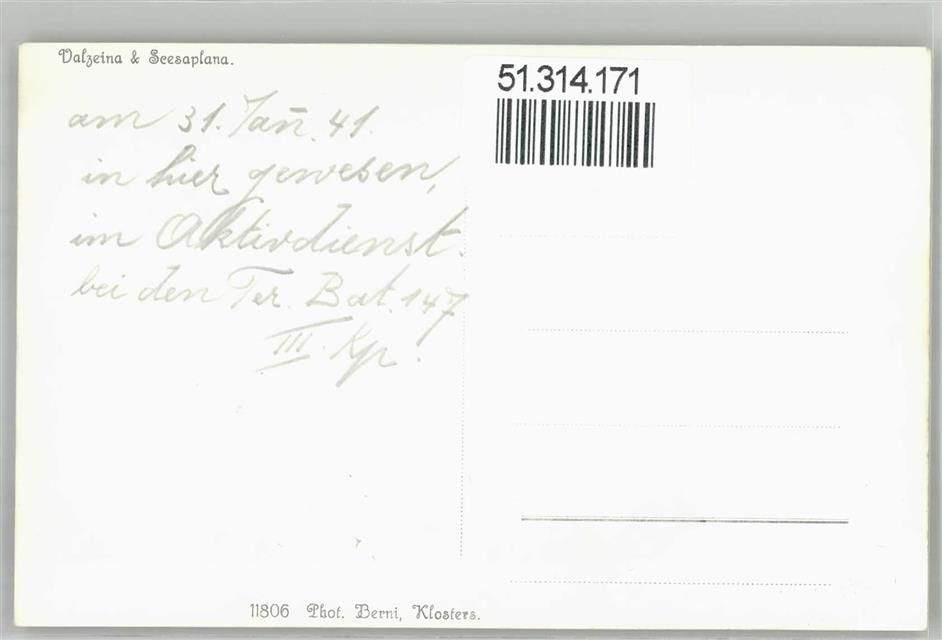 Valzeina & Scesaplana.
51.314.171
am 31. Jan̄. 41.
in hier gewesen,
im Aktivdienst.
bei den Ter. Bat. 147
III. Kp.
11806 Phot. Berni, Klosters.